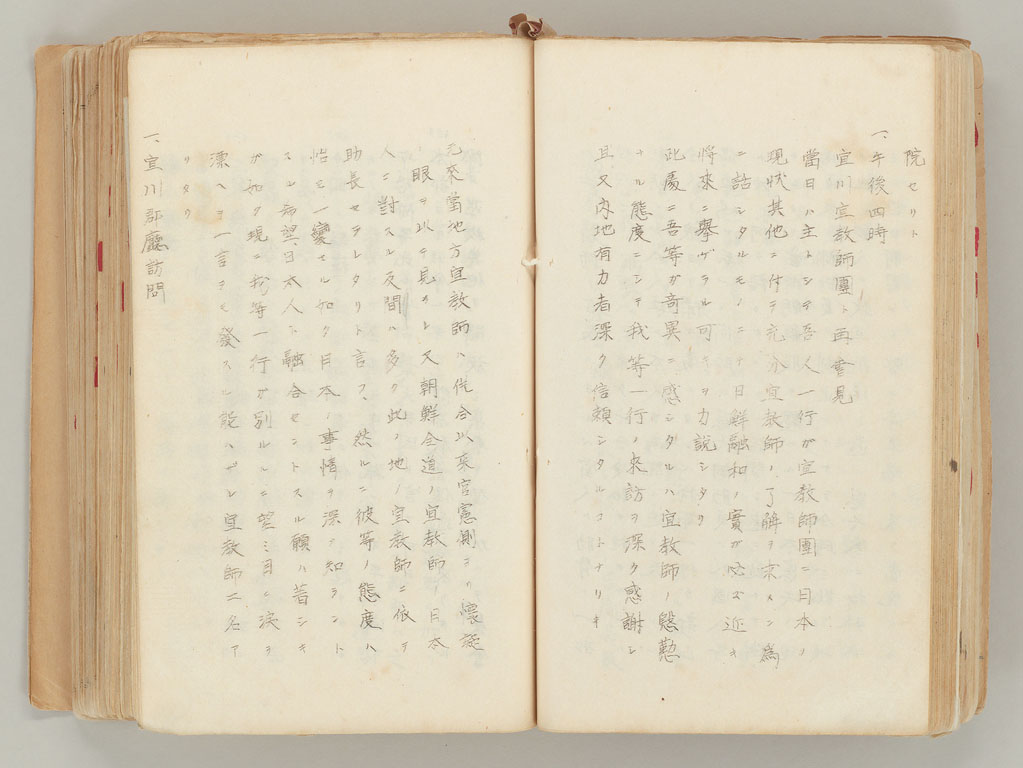 院セリト
一、午後四時
宣川宣教師團ト再會見
當日ハ主トシテ吾人一行ガ宣教師團ニ日本ノ
現状其他ニ付テ充分宣教師ノ了解ヲ求メン為
ニ話シタルモノニシテ日鮮融和ノ實ガ必ズ近キ
将來ニ擧ゲラル可キヲ力説シタリ
此處ニ吾等ガ奇異ニ感ジタルハ宣教師ノ慇懃
ナル態度ニシテ我等一行ノ來訪ヲ深ク感謝シ
且又内地有力者深ク信頼シタルコトナリキ
元來當地方宣教師ハ併合以來官憲側ヨリ懐疑
ノ眼ヲ以テ見ラレ又朝鮮全道ノ宣教師ノ日本
人ニ對スル反間ハ多ク此ノ地ノ宣教師ニ依テ
助長セラレタリト言フ、然ルニ彼等ノ態度ハ
恰モ一變セル如ク日本ノ事情ヲ深ク知ラント
スル希望、日本人ト融合セントスル願ハ著シキ
ガ如ク現ニ我等一行ガ別ルルニ望ミ目ニ涙ヲ
漂ヘテ一言ヲモ發スル能ハザル宣教師二名ア
リタリ
一、宣川郡廳訪問